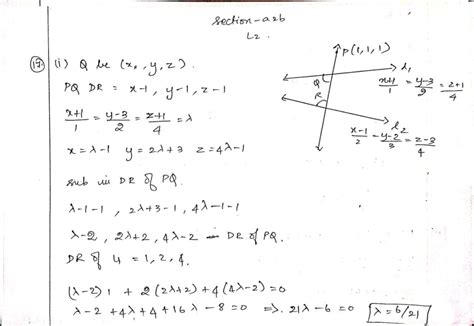 Section-a2b
L2.
(17) (i) Q be (x, y, z).
PQ DR = x-1, y-1, z-1
x+1/1 = y-3/2 = z+1/4 = λ
x = λ-1 y = 2λ+3 z = 4λ-1
sub in DR of PQ.
λ-1-1, 2λ+3-1, 4λ-1-1
λ-2, 2λ+2, 4λ-2 — DR of PQ.
DR of 4 = 1, 2, 4.
(λ-2)1 + 2(2λ+2) + 4(4λ-2) = 0
λ-2 + 4λ+4 + 16λ-8 = 0 ⇒ 21λ-6 = 0 λ = 6/21
P(1,1,1)
l1
Q
x+1/1 = y-3/2 = z+1/4
R
l2
x-1/2 = y-2/3 = z-3/4